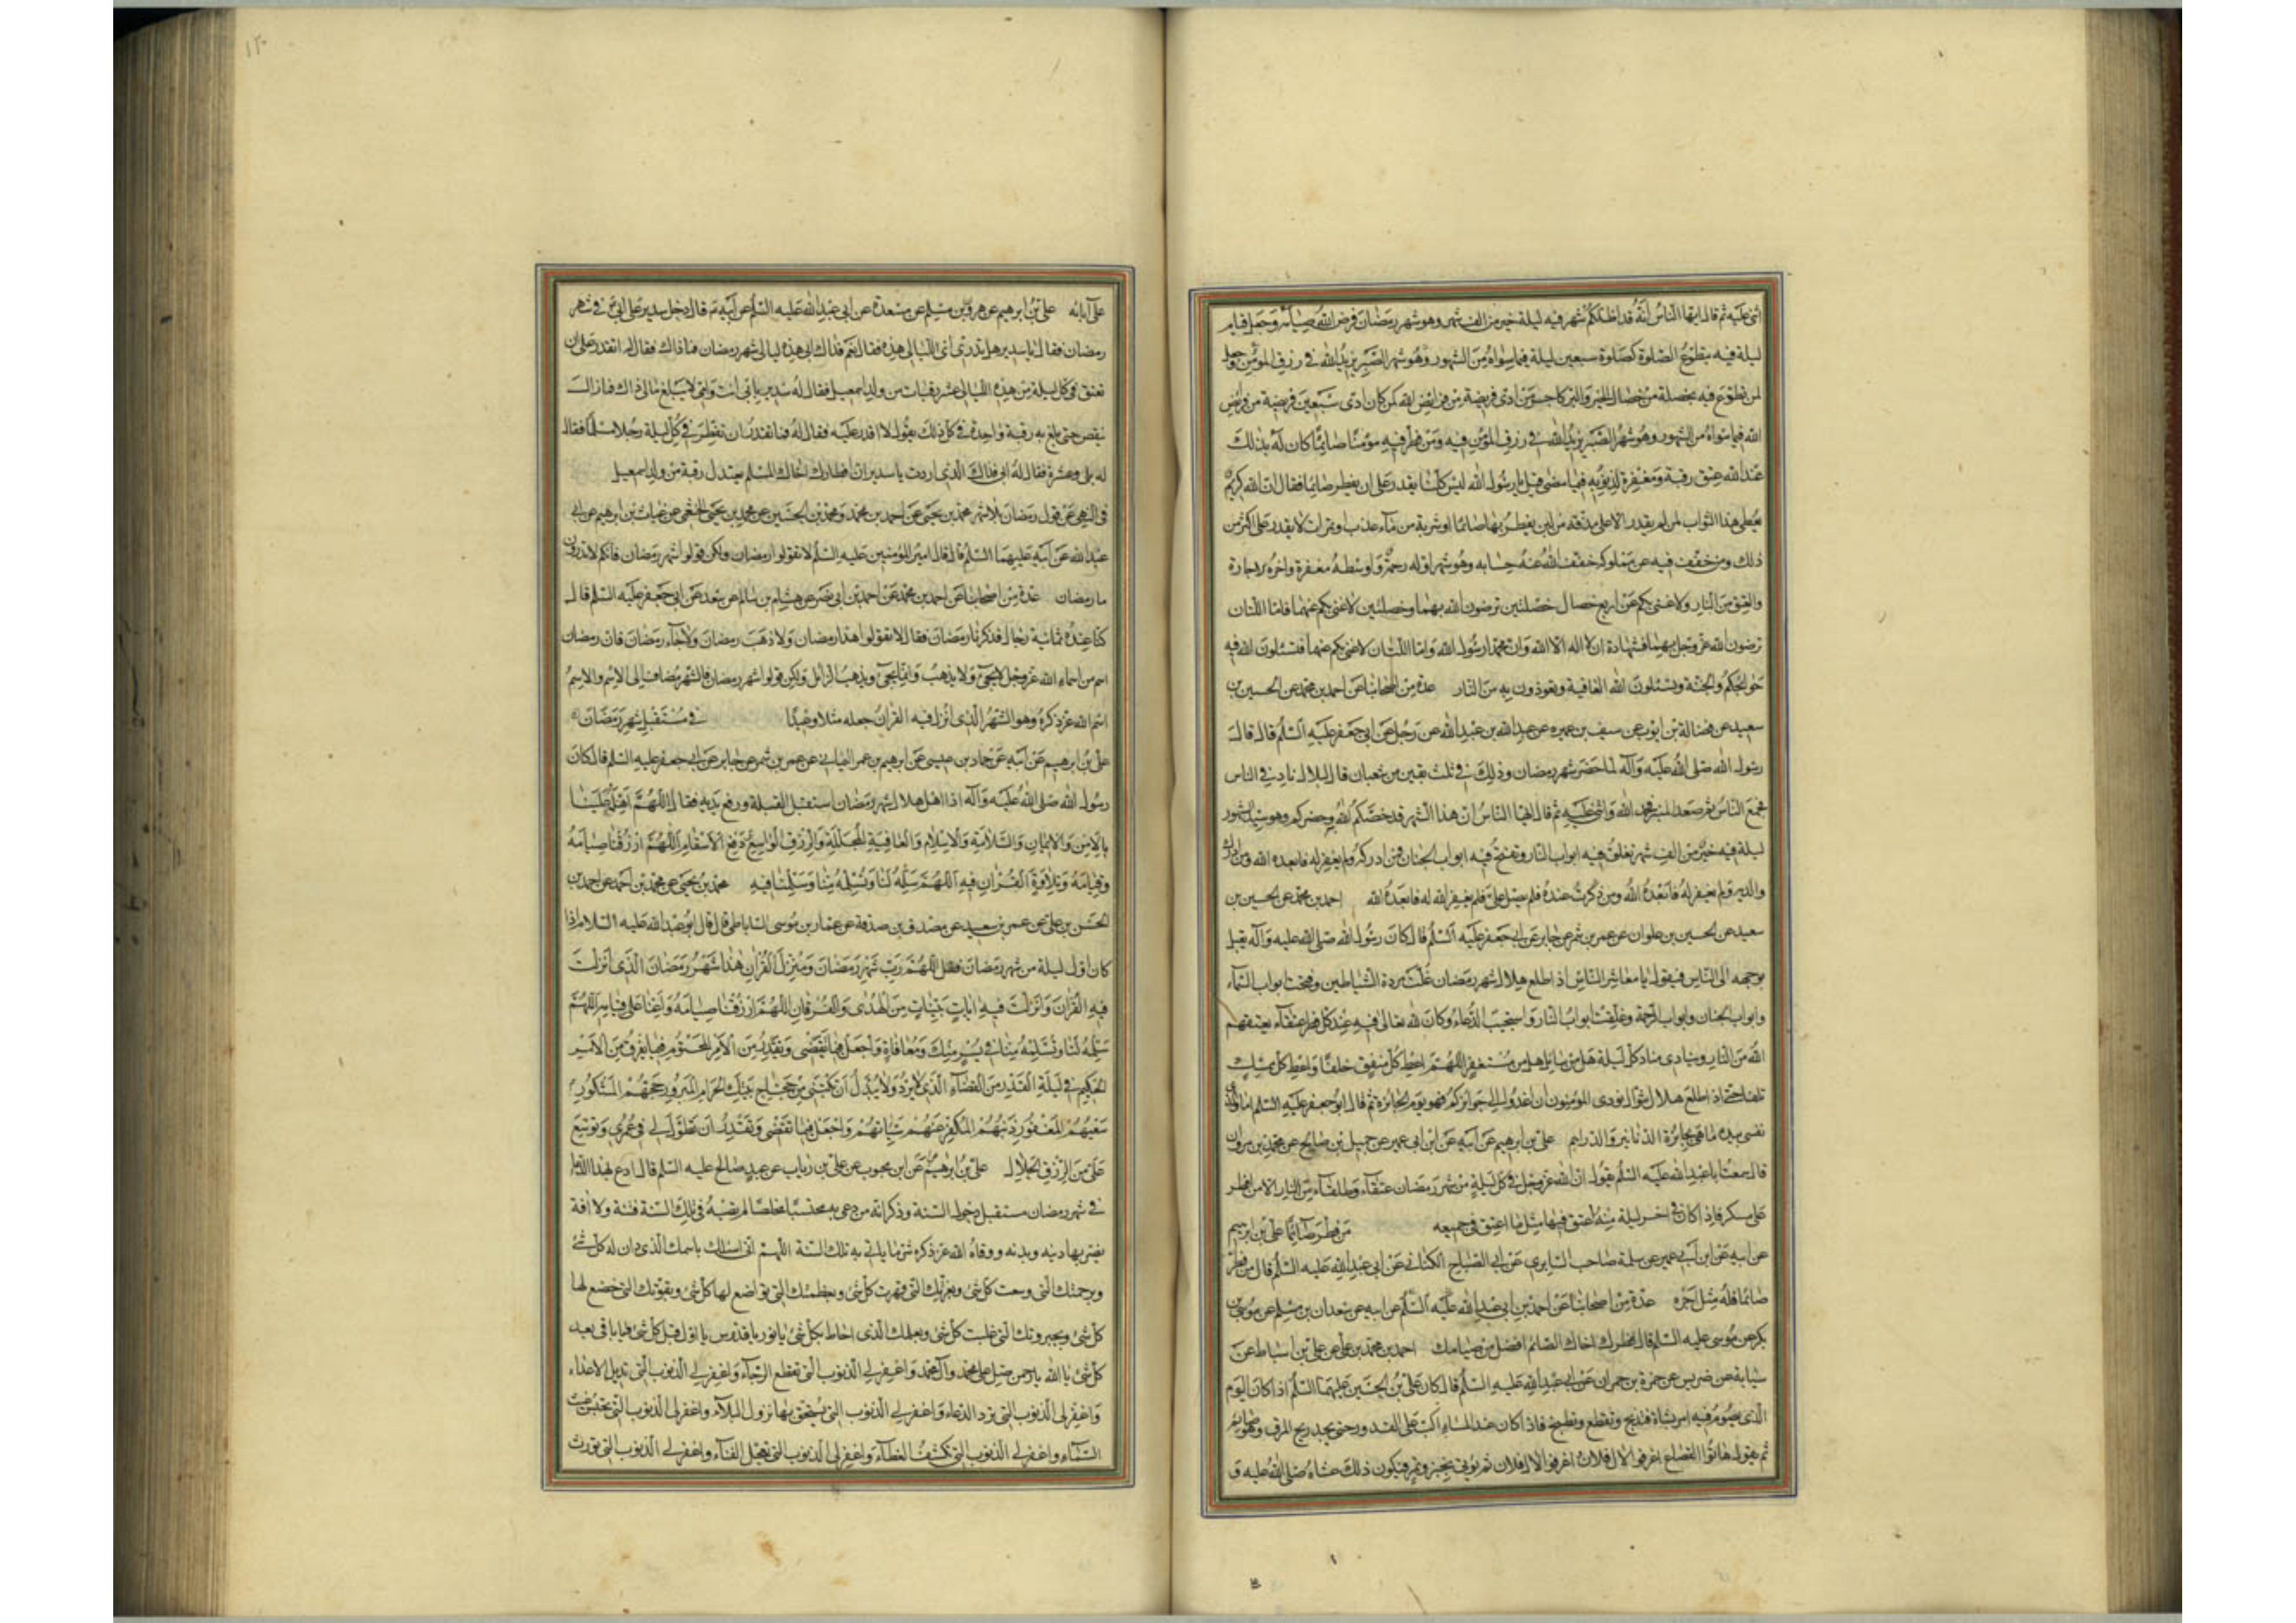 اثنى عليه ثم قال ايها الناس انه قد اظلكم شهر فيه ليلة خير من الف شهر وهو شهر رمضان فرض الله صيامه وجعل قيام
ليلة فيه بتطوع الصلوة كصلوة سبعين ليلة فيما سواه من الشهور وجعل
لمن تطوع فيه بخصلة من خصال الخير والبر كاجر من ادى فريضة من فرايض الله كمن كان ادى سبعين فريضة من فرايض
الله فيما سواه من الشهور وهو شهر الصبر يزيد الله في رزق المؤمن فيه ومن فطر فيه مؤمنا صائما كان له بذلك
عند الله عتق رقبة ومغفرة لذنوبه فيما مضى قيل يا رسول الله ليس كلنا يقدر على ان يفطر صائما فقال ان الله كريم
يعطى هذا الثواب لمن لم يقدر الا على مذقة من لبن يفطر بها صائما او شربة من ماء عذب او تمرات لا يقدر على اكثر من
ذلك ومن خفف فيه عن مملوكه خفف الله عنه حسابه وهو شهر اوله رحمة واوسطه مغفرة واخره الاجابة
والعتق من النار ولا غنى بكم عن اربع خصال خصلتين ترضون الله بهما وخصلتين لا غنى بكم عنهما فاما اللتان
ترضون الله عز وجل بهما فشهادة ان لا اله الا الله وان محمدا رسول الله واما اللتان لا غنى بكم عنهما فتسئلون الله فيه
حوائجكم والجنة وتسئلون الله العافية وتعوذون به من النار عدة من اصحابنا عن احمد بن محمد عن الحسين بن
سعيد عن فضالة بن ايوب عن سيف بن عميره عن عبد الله بن عبيد الله عن رجل عن ابى جعفر عليه السلم قال قال
رسول الله صلى الله عليه وآله لما حضر شهر رمضان وذلك في ثلث بقين من شعبان قال لبلال ناد في الناس
فجمع الناس ثم صعد المنبر فحمد الله واثنى عليه ثم قال ايها الناس ان هذا الشهر قد خصكم الله به وحضركم وهو سيد الشهور
ليلة فيه خير من الف شهر تغلق فيه ابواب النار وتفتح فيه ابواب الجنان فمن ادركه ولم يغفر له فابعده الله ومن ادرك
والديه ولم يغفر له فابعده الله ومن ذكرت عنده فلم يصل على فلم يغفر الله له فابعده الله احمد بن محمد عن الحسين بن
سعيد عن الحسين بن علوان عن عمرو بن شمر عن جابر عن ابى جعفر عليه السلم قال كان رسول الله صلى الله عليه وآله يقبل
بوجهه الى الناس فيقول يا معاشر الناس اذا طلع هلال شهر رمضان غلت مردة الشياطين وفتحت ابواب السماء
وابواب الجنان وابواب الرحمة وغلقت ابواب النار واستجيب الدعاء وكان لله تعالى فيه عند كل فطر عتقاء يعتقهم
الله من النار وينادى مناد كل ليلة هل من سائل هل من مستغفر اللهم اعط كل منفق خلفا واعط كل ممسك
تلفا حتى اذا طلع هلال شوال نودى المؤمنون ان اغدوا الى جوائزكم فهو يوم الجائزة ثم قال ابو جعفر عليه السلم اما والذى
نفسى بيده ما هى بجائزة الدنانير والدراهم على بن ابرهيم عن ابيه عن ابن ابى عمير عن جميل بن صالح عن محمد بن مروان
قال سمعت ابا عبد الله عليه السلم يقول ان الله عز وجل في كل ليلة من شهر رمضان عتقاء وطلقاء من النار الا من افطر
على مسكر فاذا كان في اخر ليلة منه اعتق فيها مثل ما اعتق في جميعه من فطر صائما على بن ابرهيم
عن ابيه عن ابن ابى عمير عن سلمة صاحب السابرى عن ابى الصباح الكنانى عن ابى عبد الله عليه السلم قال من فطر
صائما فله مثل اجره عدة من اصحابنا عن احمد بن ابى عبد الله عليه السلم عن ابيه عن سعدان بن مسلم عن موسى بن
بكر عن موسى عليه السلم قال فطرك اخاك الصائم افضل من صيامك احمد بن محمد بن على عن على بن اسباط عن
سيابة عن ضريس عن حمزة بن حمران عن ابى عبد الله عليه السلم قال كان على بن الحسين عليهما السلم اذا كان اليوم
الذى يصوم فيه امر بشاة فتذبح وتقطع وتطبخ فاذا كان عند المساء اكب على القدور حتى يجد ريح المرق وهو صايم
ثم يقول هاتوا القصاع اغرفوا لال فلان اغرفوا لال فلان ثم يؤتى بخبز وتمر فيكون ذلك عشاءه صلى الله عليه و
على آبائه على بن ابرهيم عن هرون بن مسلم عن مسعدة عن ابى عبد الله عليه السلم عن ابيه قال دخل سدير على ابى في شهر
رمضان فقال يا سدير هل تدرى اى الليالى هذه فقال نعم فداك ابى هذه ليالى شهر رمضان فما ذاك فقال له اتقدر على ان
تعتق في كل ليلة من هذه الليالى عشر رقبات من ولد اسمعيل فقال له سدير بابى انت وامى لا يبلغ مالى ذاك فما زال
ينقص حتى بلغ به رقبة واحدة في كل ذلك يقول لا اقدر عليه فقال له فما تقدر ان تفطر في كل ليلة رجلا مسلما فقال
له بلى وعشرة فقال له ابى فذاك الذى اردت يا سدير ان افطارك اخاك المسلم يعدل رقبة من ولد اسمعيل
في النهى عن قول رمضان بلا شهر محمد بن يحيى عن احمد بن محمد ومحمد بن الحسين عن محمد بن يحيى الخثعمى عن غياث بن ابرهيم عن ابى
عبد الله عن ابيه عليهما السلم قال قال امير المؤمنين عليه السلم لا تقولوا رمضان ولكن قولوا شهر رمضان فانكم لا تدرون
ما رمضان عدة من اصحابنا عن احمد بن محمد عن احمد بن ابى نصر عن هشام بن سالم عن سعد عن ابى جعفر عليه السلم قال
كنا عنده ثمانية رجال فذكرنا رمضان فقال لا تقولوا هذا رمضان ولا ذهب رمضان ولا جاء رمضان فان رمضان
اسم من اسماء الله عز وجل لا يجئ ولا يذهب وانما يجئ ويذهب الزائل ولكن قولوا شهر رمضان فالشهر مضاف الى الاسم والاسم
اسم الله عز ذكره وهو الشهر الذى انزل فيه القران جعله مثلا وعيدا في مستقبل شهر رمضان
على بن ابرهيم عن ابيه عن حماد بن عيسى عن ابرهيم بن عمر اليمانى عن عمرو بن شمر عن جابر عن ابى جعفر عليه السلم قال كان
رسول الله صلى الله عليه وآله اذا اهل هلال شهر رمضان استقبل القبلة ورفع يديه فقال اللهم اهله علينا
بالامن والايمان والسلامة والاسلام والعافية المجللة والرزق الواسع ودفع الاسقام اللهم ارزقنا صيامه
وقيامه وتلاوة القران فيه اللهم سلمه لنا وتسلمه منا وسلمنا فيه محمد بن يحيى عن محمد بن احمد عن احمد بن
الحسن بن على عن عمرو بن سعيد عن مصدق بن صدقة عن عمار بن موسى الساباطى قال قال ابو عبد الله عليه السلام اذا
كان اول ليلة من شهر رمضان فقل اللهم رب شهر رمضان ومنزل القران هذا شهر رمضان الذى انزلت
فيه القران وانزلت فيه ايات بينات من الهدى والفرقان اللهم ارزقنا صيامه واعنا على قيامه اللهم
سلمه لنا وتسلمه منا في يسر منك ومعافاة واجعل فيما تقضى وتقدر من الامر المحتوم فيما يفرق من الامر
الحكيم في ليلة القدر من القضاء الذى لا يرد ولا يبدل ان تكتبنى من حجاج بيتك الحرام المبرور حجهم المشكور
سعيهم المغفور ذنبهم المكفر عنهم سيئاتهم واجعل فيما تقضى وتقدر ان تطول لى في عمرى وتوسع
على من الرزق الحلال على بن ابرهيم عن ابن محبوب عن على بن رياب عن عبد صالح عليه السلم قال ادع بهذا الدعاء
في شهر رمضان مستقبل دخول السنة وذكر انه من دعى به محتسبا مخلصا لم تصبه في تلك السنة فتنة ولا افة
يضر بها دينه وبدنه ووقاه الله عز ذكره شر ما ياتى به تلك السنة اللهم انى اسئلك باسمك الذى دان له كل شئ
وبرحمتك التى وسعت كل شئ وبعزتك التى قهرت كل شئ وبعظمتك التى تواضع لها كل شئ وبقوتك التى خضع لها
كل شئ وبجبروتك التى غلبت كل شئ وبعلمك الذى احاط بكل شئ يا نور يا قدوس يا اول قبل كل شئ ويا باقى بعد
كل شئ يا الله يا رحمن صل على محمد وآل محمد واغفر لى الذنوب التى تقطع الرجاء واغفر لى الذنوب التى تديل الاعداء
واغفر لى الذنوب التى ترد الدعاء واغفر لى الذنوب التى يستحق بها نزول البلاء واغفر لى الذنوب التى تحبس غيث
السماء واغفر لى الذنوب التى تكشف الغطاء واغفر لى الذنوب التى تعجل الفناء واغفر لى الذنوب التى تورث